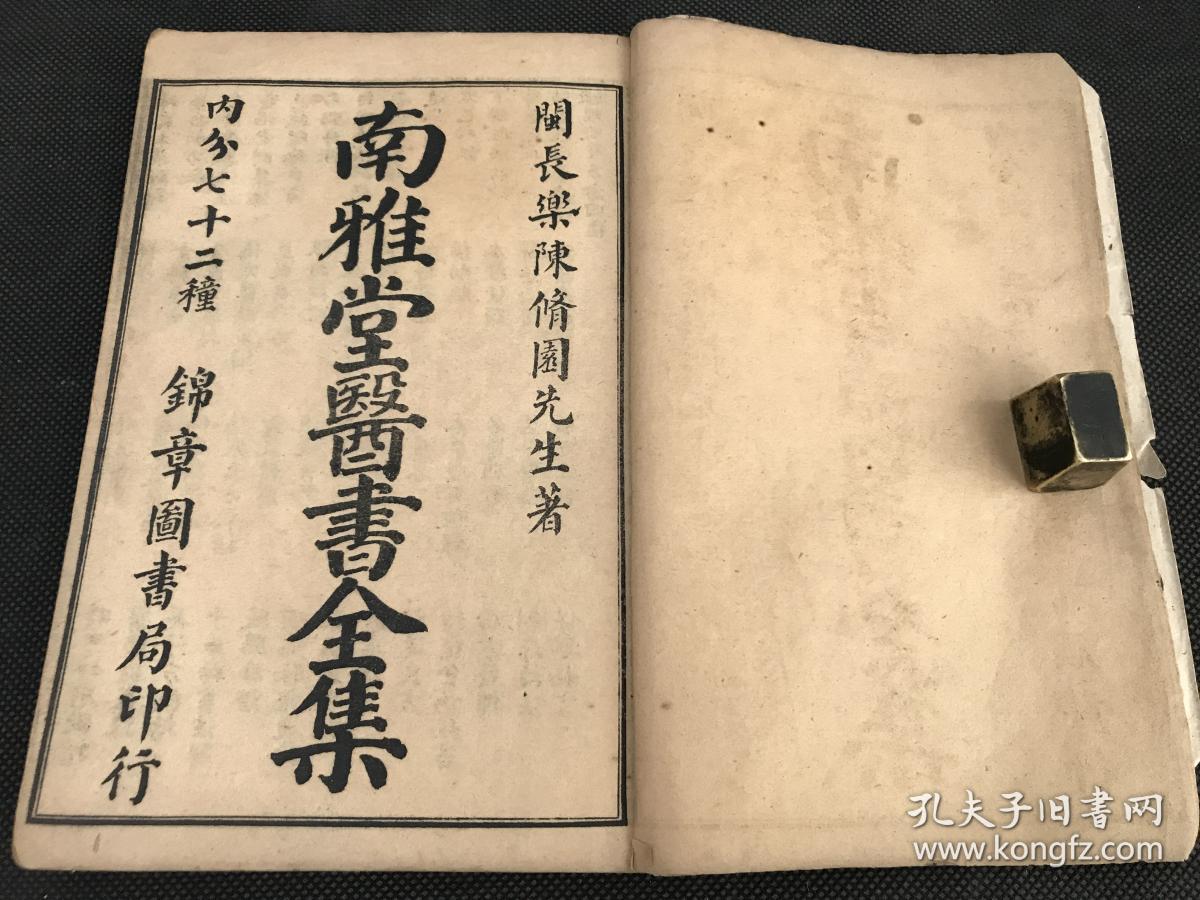 閩長樂陳脩園先生著
南雅堂醫書全集
內分七十二種
錦章圖書局印行
孔夫子旧书网
www.kongfz.com